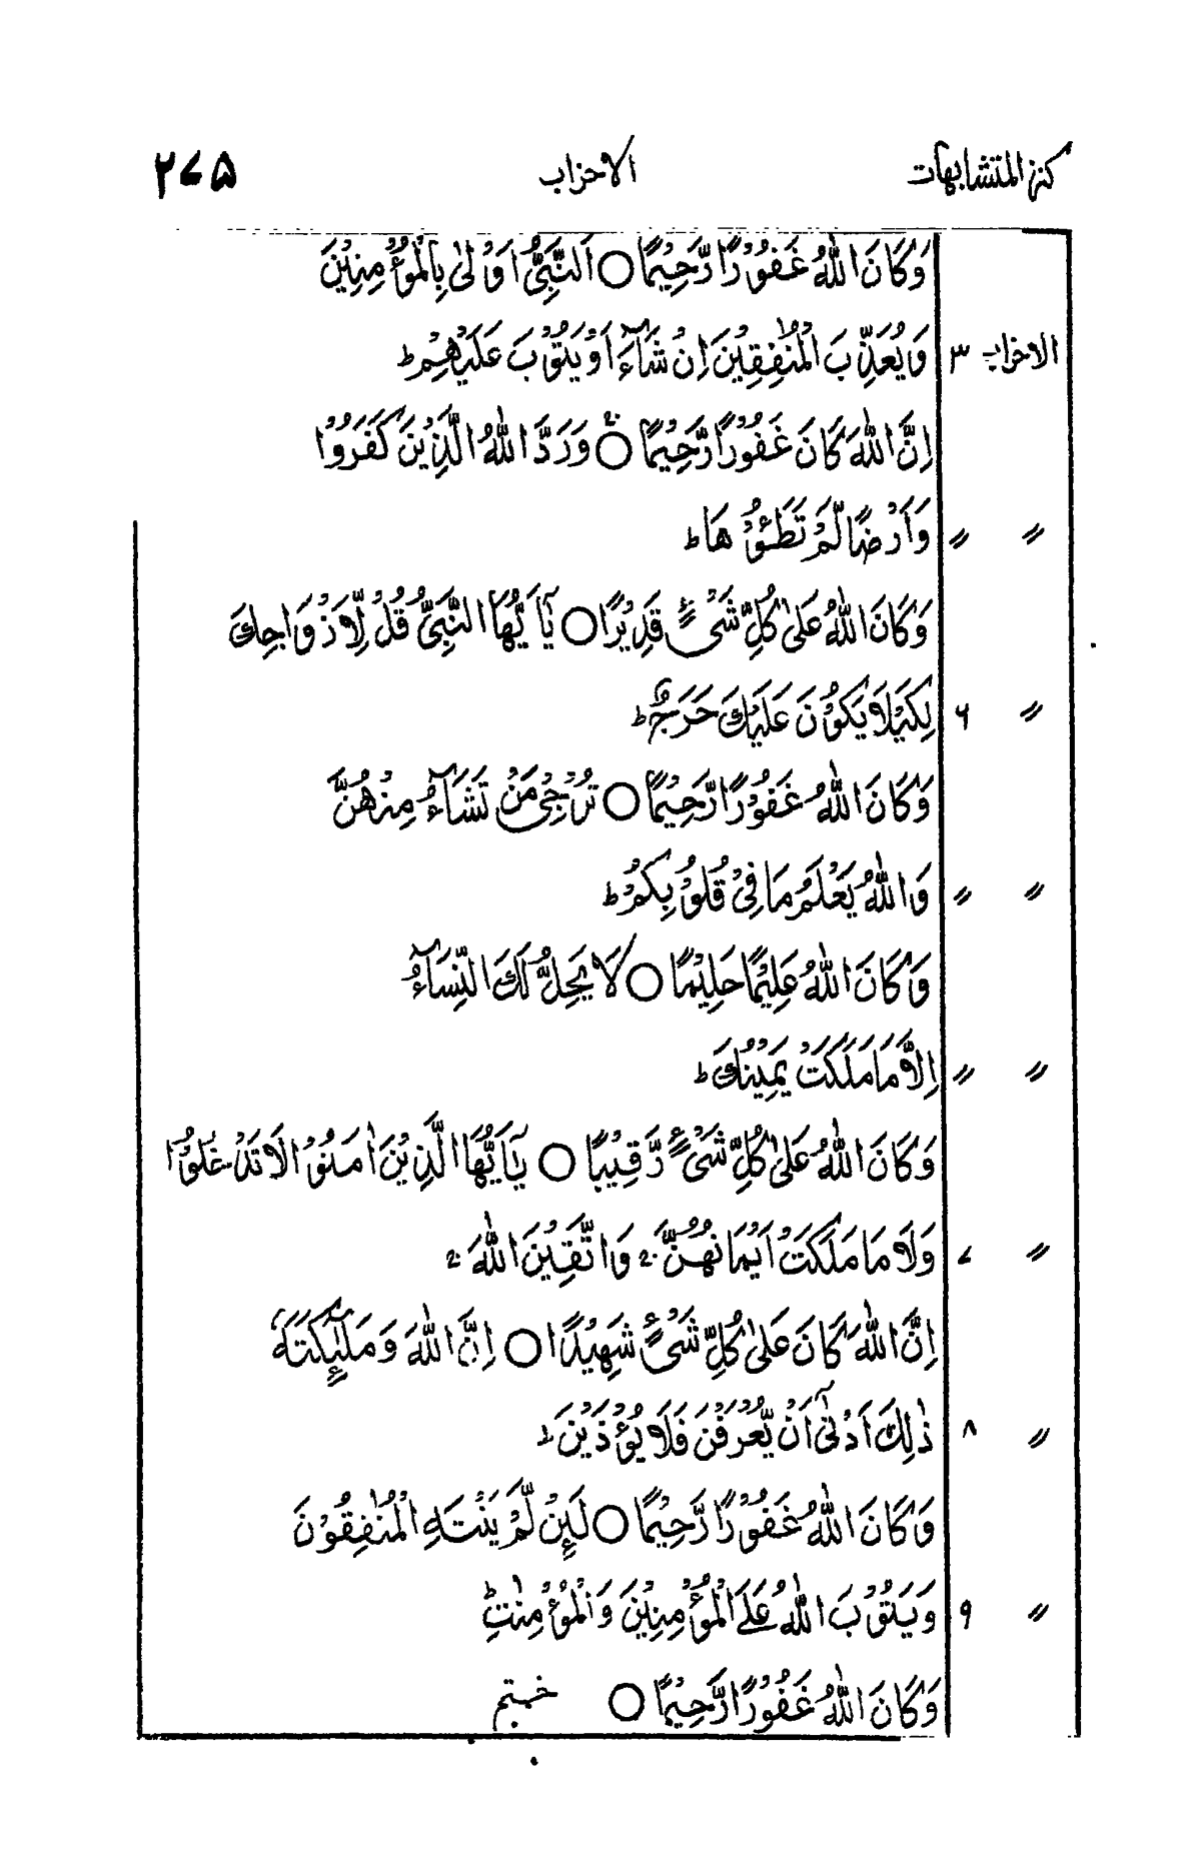 كنز المتشابهات الاحزاب ۲۷۵
وَكَانَ اللّٰهُ غَفُوْرًا رَّحِيْمًا ○ اَلنَّبِىُّ اَوْلٰى بِالْمُؤْمِنِيْنَ
الاحزاب ۳ وَيُعَذِّبَ الْمُنٰفِقِيْنَ اِنْ شَآءَ اَوْ يَتُوْبَ عَلَيْهِمْ ؕ
اِنَّ اللّٰهَ كَانَ غَفُوْرًا رَّحِيْمًا ○ۚ وَرَدَّ اللّٰهُ الَّذِيْنَ كَفَرُوْا
〃 〃 وَاَرْضًا لَّمْ تَطَـُٔوْهَا ؕ
وَكَانَ اللّٰهُ عَلٰى كُلِّ شَىْءٍ قَدِيْرًا ○ يٰٓاَيُّهَا النَّبِىُّ قُلْ لِّاَزْوَاجِكَ
〃 ۶ لِكَيْلَا يَكُوْنَ عَلَيْكَ حَرَجٌ ؕ
وَكَانَ اللّٰهُ غَفُوْرًا رَّحِيْمًا ○ تُرْجِىْ مَنْ تَشَآءُ مِنْهُنَّ
〃 〃 وَاللّٰهُ يَعْلَمُ مَا فِىْ قُلُوْبِكُمْ ؕ
وَكَانَ اللّٰهُ عَلِيْمًا حَلِيْمًا ○ لَا يَحِلُّ لَكَ النِّسَآءُ
〃 〃 اِلَّا مَا مَلَكَتْ يَمِيْنُكَ ؕ
وَكَانَ اللّٰهُ عَلٰى كُلِّ شَىْءٍ رَّقِيْبًا ○ يٰٓاَيُّهَا الَّذِيْنَ اٰمَنُوْا لَا تَدْخُلُوْا
〃 ۷ وَلَا مَا مَلَكَتْ اَيْمَانُهُنَّ ۚ وَاتَّقِيْنَ اللّٰهَ ۚ
اِنَّ اللّٰهَ كَانَ عَلٰى كُلِّ شَىْءٍ شَهِيْدًا ○ اِنَّ اللّٰهَ وَمَلٰٓئِكَتَهٗ
〃 ۸ ذٰلِكَ اَدْنٰٓى اَنْ يُّعْرَفْنَ فَلَا يُؤْذَيْنَ ؕ
وَكَانَ اللّٰهُ غَفُوْرًا رَّحِيْمًا ○ لَئِنْ لَّمْ يَنْتَهِ الْمُنٰفِقُوْنَ
〃 ۹ وَيَتُوْبَ اللّٰهُ عَلَى الْمُؤْمِنِيْنَ وَالْمُؤْمِنٰتِ ؕ
وَكَانَ اللّٰهُ غَفُوْرًا رَّحِيْمًا ○ ختم